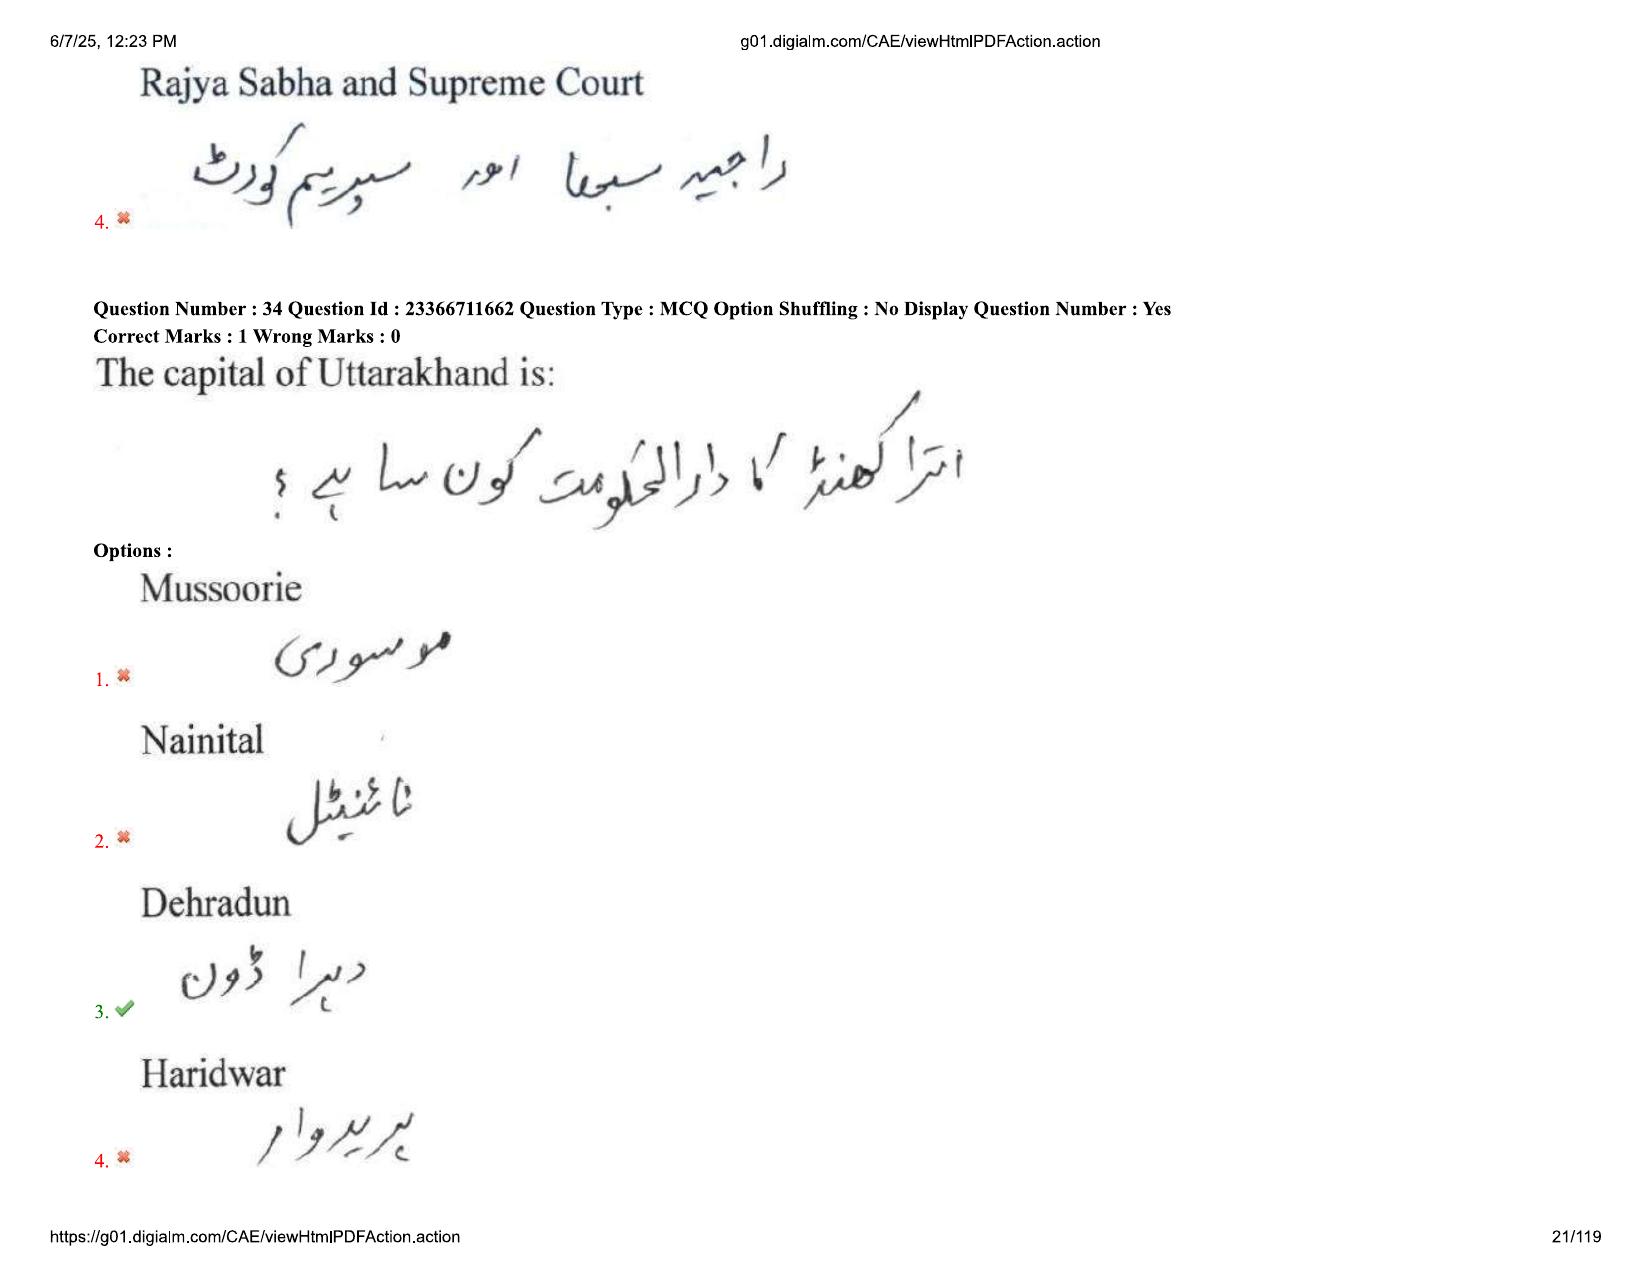 6/7/25, 12:23 PM g01.digialm.com/CAE/viewHtmlPDFAction.action
Rajya Sabha and Supreme Court
راجیہ سبھا اور سپریم کورٹ
4.
Question Number : 34 Question Id : 23366711662 Question Type : MCQ Option Shuffling : No Display Question Number : Yes
Correct Marks : 1 Wrong Marks : 0
The capital of Uttarakhand is:
اترا کھنڈ کا دارالحکومت کون سا ہے ؟
Options :
Mussoorie
موسوری
1.
Nainital
نائنیٹل
2.
Dehradun
دہرا ڈون
3.
Haridwar
ہریدوار
4.
https://g01.digialm.com/CAE/viewHtmlPDFAction.action 21/119